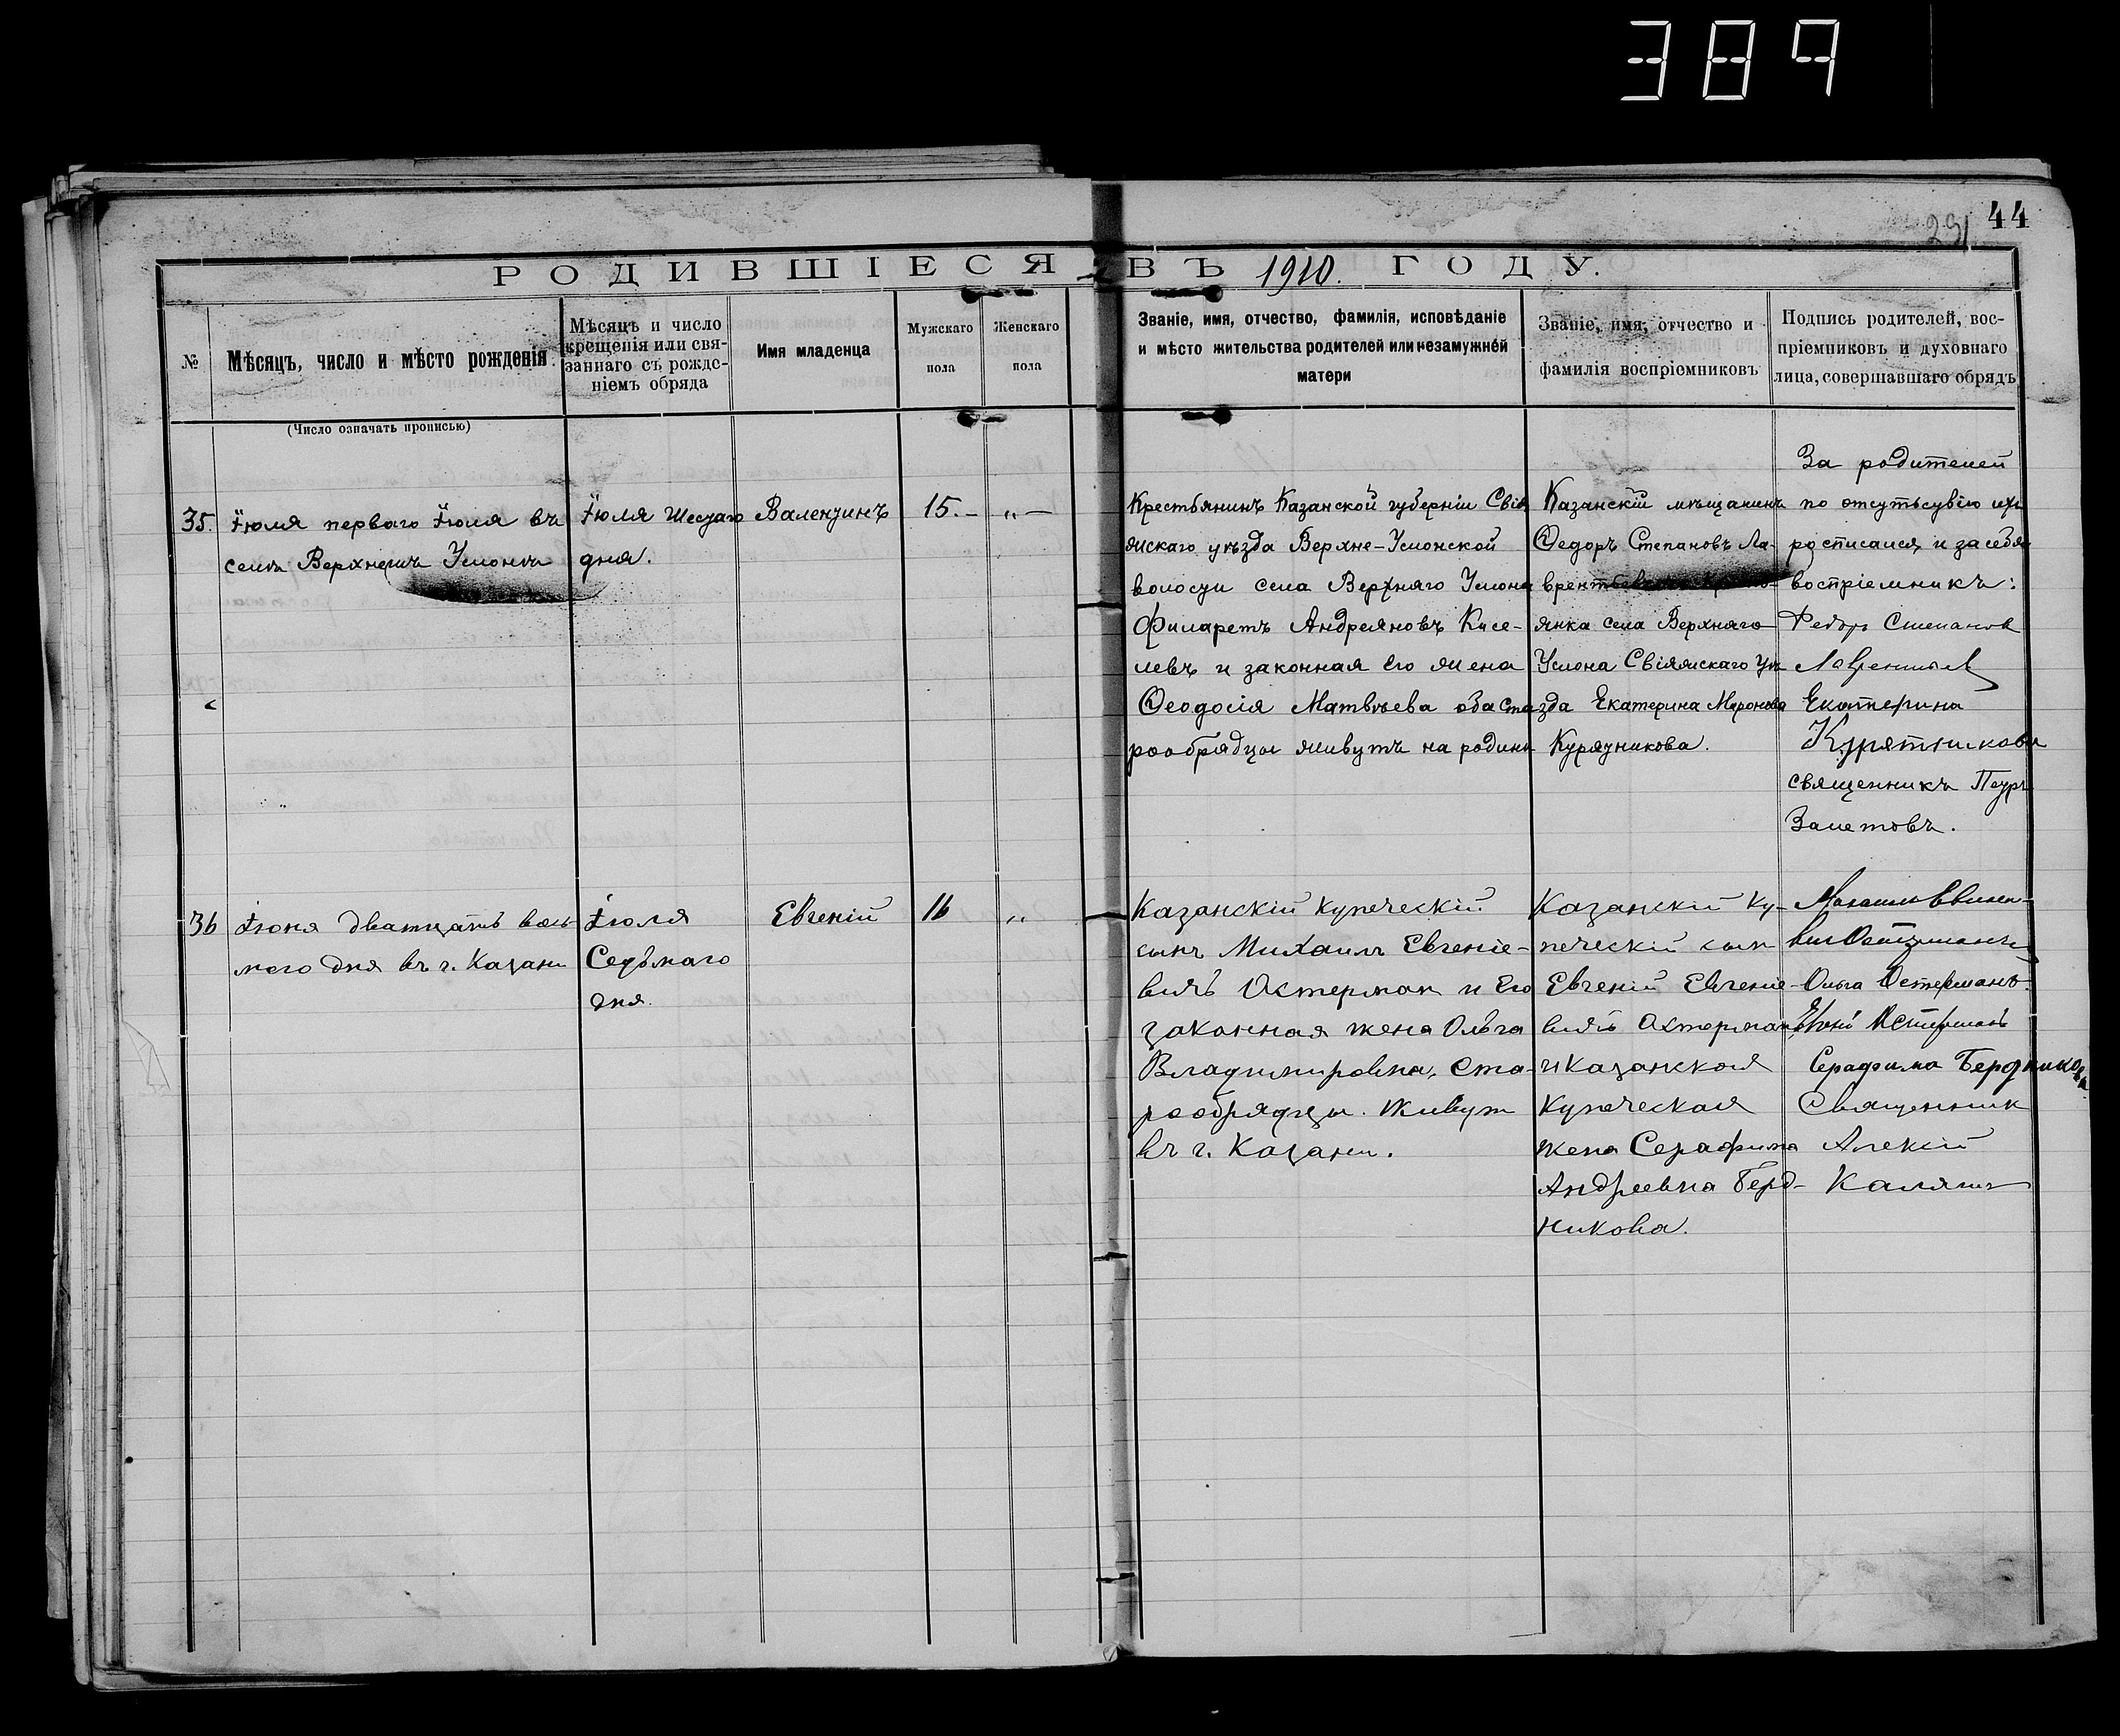 389
44
291
РОДИВШІЕСЯ ВЪ 1910. ГОДУ.
№
Мѣсяцъ, число и мѣсто рожденія.
Мѣсяцъ и число
крещенія или свя-
заннаго съ рожде-
ніемъ обряда
Имя младенца
Мужскаго
пола
Женскаго
пола
Званіе, имя, отчество, фамилія, исповѣданіе
и мѣсто жительства родителей или незамужней
матери
Званіе, имя, отчество и
фамилія воспріемниковъ
Подпись родителей, вос-
пріемниковъ и духовнаго
лица, совершавшаго обрядъ
(Число означать прописью)
35.
Іюля перваго Іюля въ
селѣ Верхнемъ Услонѣ
Іюля шестаго
дня.
Валентинъ
15.—
„—
Крестьянинъ Казанской губерніи Свія
жскаго уѣзда Верхне-Услонской
волости села Верхняго Услона
Филаретъ Андреяновъ Кисе-
левъ и законная его жена
Ѳеодосія Матвѣева оба ста
рообрядцы живутъ на родинѣ
Казанскій мѣщанинъ
Ѳедоръ Степановъ Ла-
врентьевъ
янка села Верхняго
Услона Свіяжскаго Уѣ
зда Екатерина Миронова
Курятникова.
За родителей
по отсутьствію ихъ
росписался и за себя
воспріемникъ:
Федоръ Степанов
Лаврентьев
Екатерина
Курятникова
священникъ Петръ
Залетовъ.
36
Іюня дватцать вось-
мого дня въ г. Казани
Іюля
Седьмаго
дня.
Евгеній
16
„
Казанскій купеческій
сынъ Михаилъ Евгеніе-
вичъ Остерман и Его
законная жена Ольга
Владимировна, ста-
рообрядцы. Живут
въ г. Казани.
Казанскій ку-
печескій сын
Евгеній Евгеніе-
вичъ Остерман
и Казанская
купеческая
жена Серафима
Андреевна Берд-
никова.
Остерманъ
Ольга Остерманъ.
Остерманъ
Серафима Бердникова
Священник
Алексій
Калягин